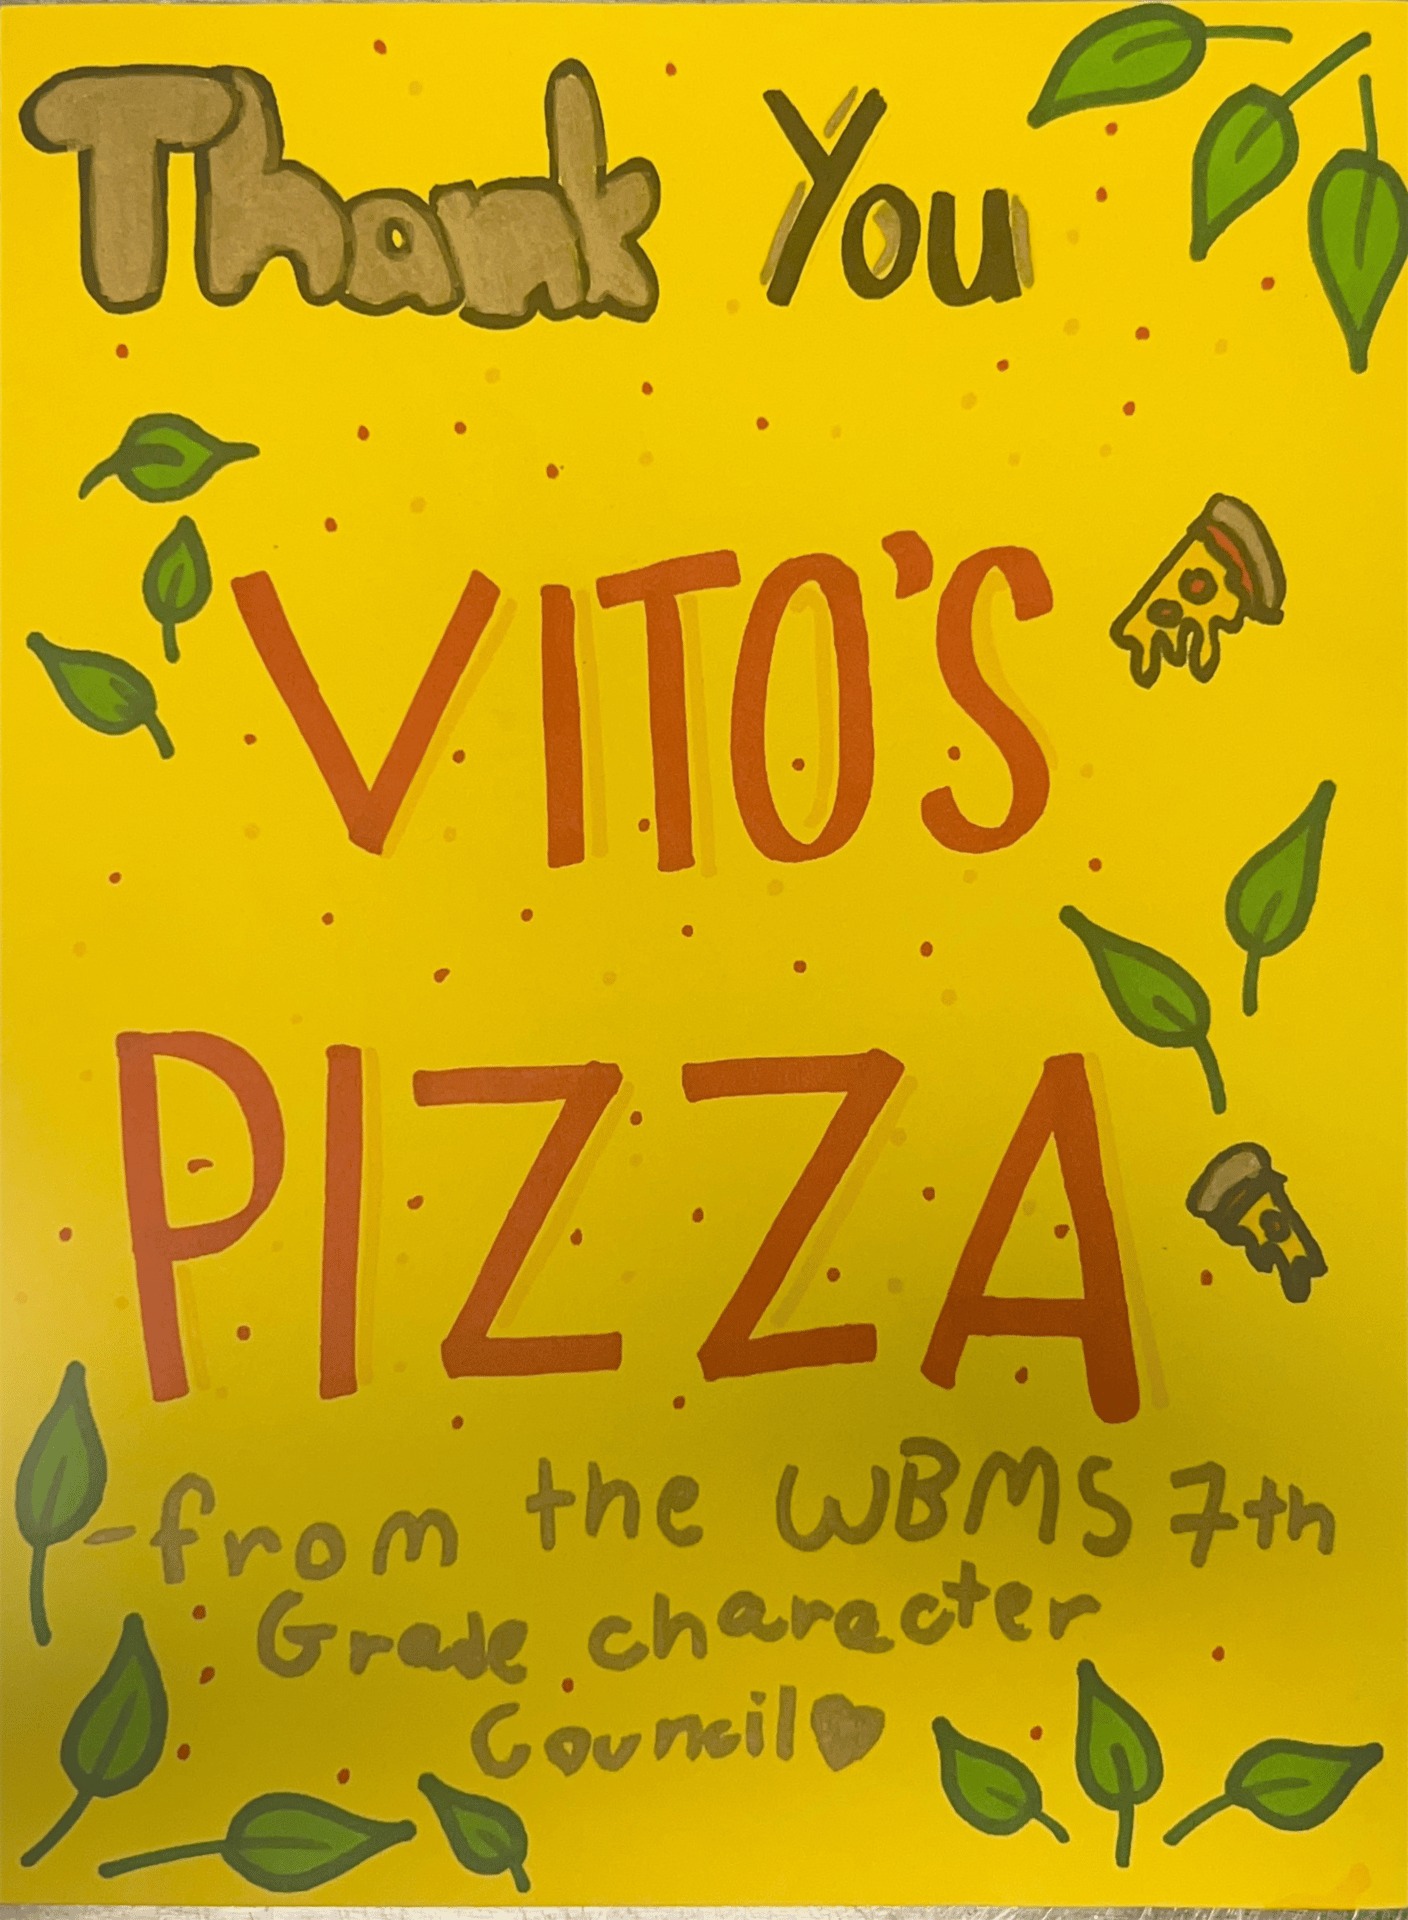 Thank You
VITO'S
PIZZA
-from the WBMS 7th
Grade character
Council♥